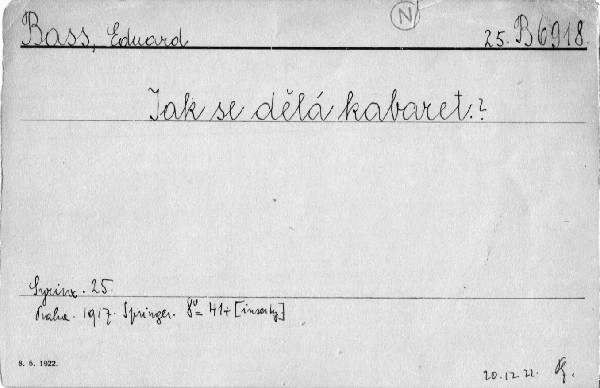 N
Bass, Eduard 25. B 6918.
Jak se dělá kabaret.?
Syrinx. 25.
Praha. 1917. Springer. 8º = 41+[inserty]
8. 5. 1922.
20.12.22.